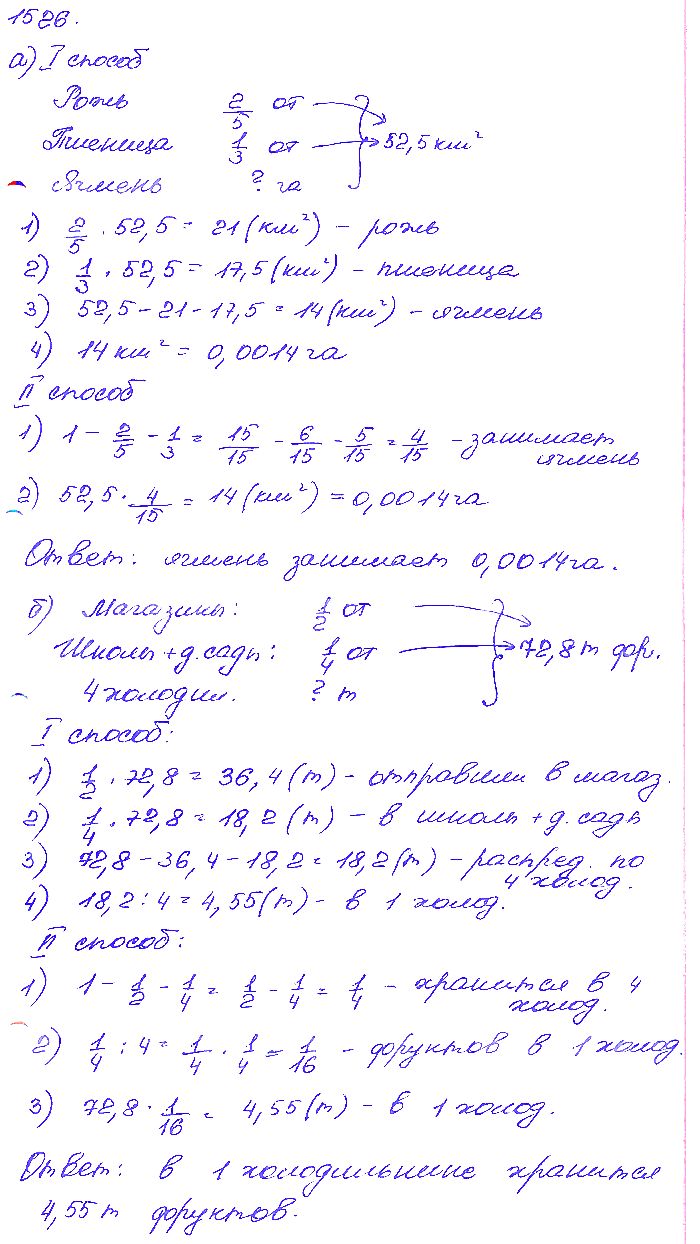 1526.
а) I способ
Рожь 2/5 от
Пшеница 1/3 от 52,5 км²
Ячмень ? га
1) 2/5 · 52,5 = 21 (км²) – рожь
2) 1/3 · 52,5 = 17,5 (км²) – пшеница
3) 52,5 – 21 – 17,5 = 14 (км²) – ячмень
4) 14 км² = 0,0014 га
II способ
1) 1 – 2/5 – 1/3 = 15/15 – 6/15 – 5/15 = 4/15 – занимает
ячмень
2) 52,5 · 4/15 = 14 (км²) = 0,0014 га
Ответ: ячмень занимает 0,0014 га.
б) Магазины: 1/2 от
Школы + д. сады: 1/4 от 72,8 т фр.
4 холодил. ? т
I способ:
1) 1/2 · 72,8 = 36,4 (т) – отправили в магаз.
2) 1/4 · 72,8 = 18,2 (т) – в школы + д. сады
3) 72,8 – 36,4 – 18,2 = 18,2 (т) – распред. по
4 холод.
4) 18,2 : 4 = 4,55 (т) – в 1 холод.
II способ:
1) 1 – 1/2 – 1/4 = 1/2 – 1/4 = 1/4 – хранится в 4
холод.
2) 1/4 : 4 = 1/4 · 1/4 = 1/16 – фруктов в 1 холод.
3) 72,8 · 1/16 = 4,55 (т) – в 1 холод.
Ответ: в 1 холодильнике хранится
4,55 т фруктов.